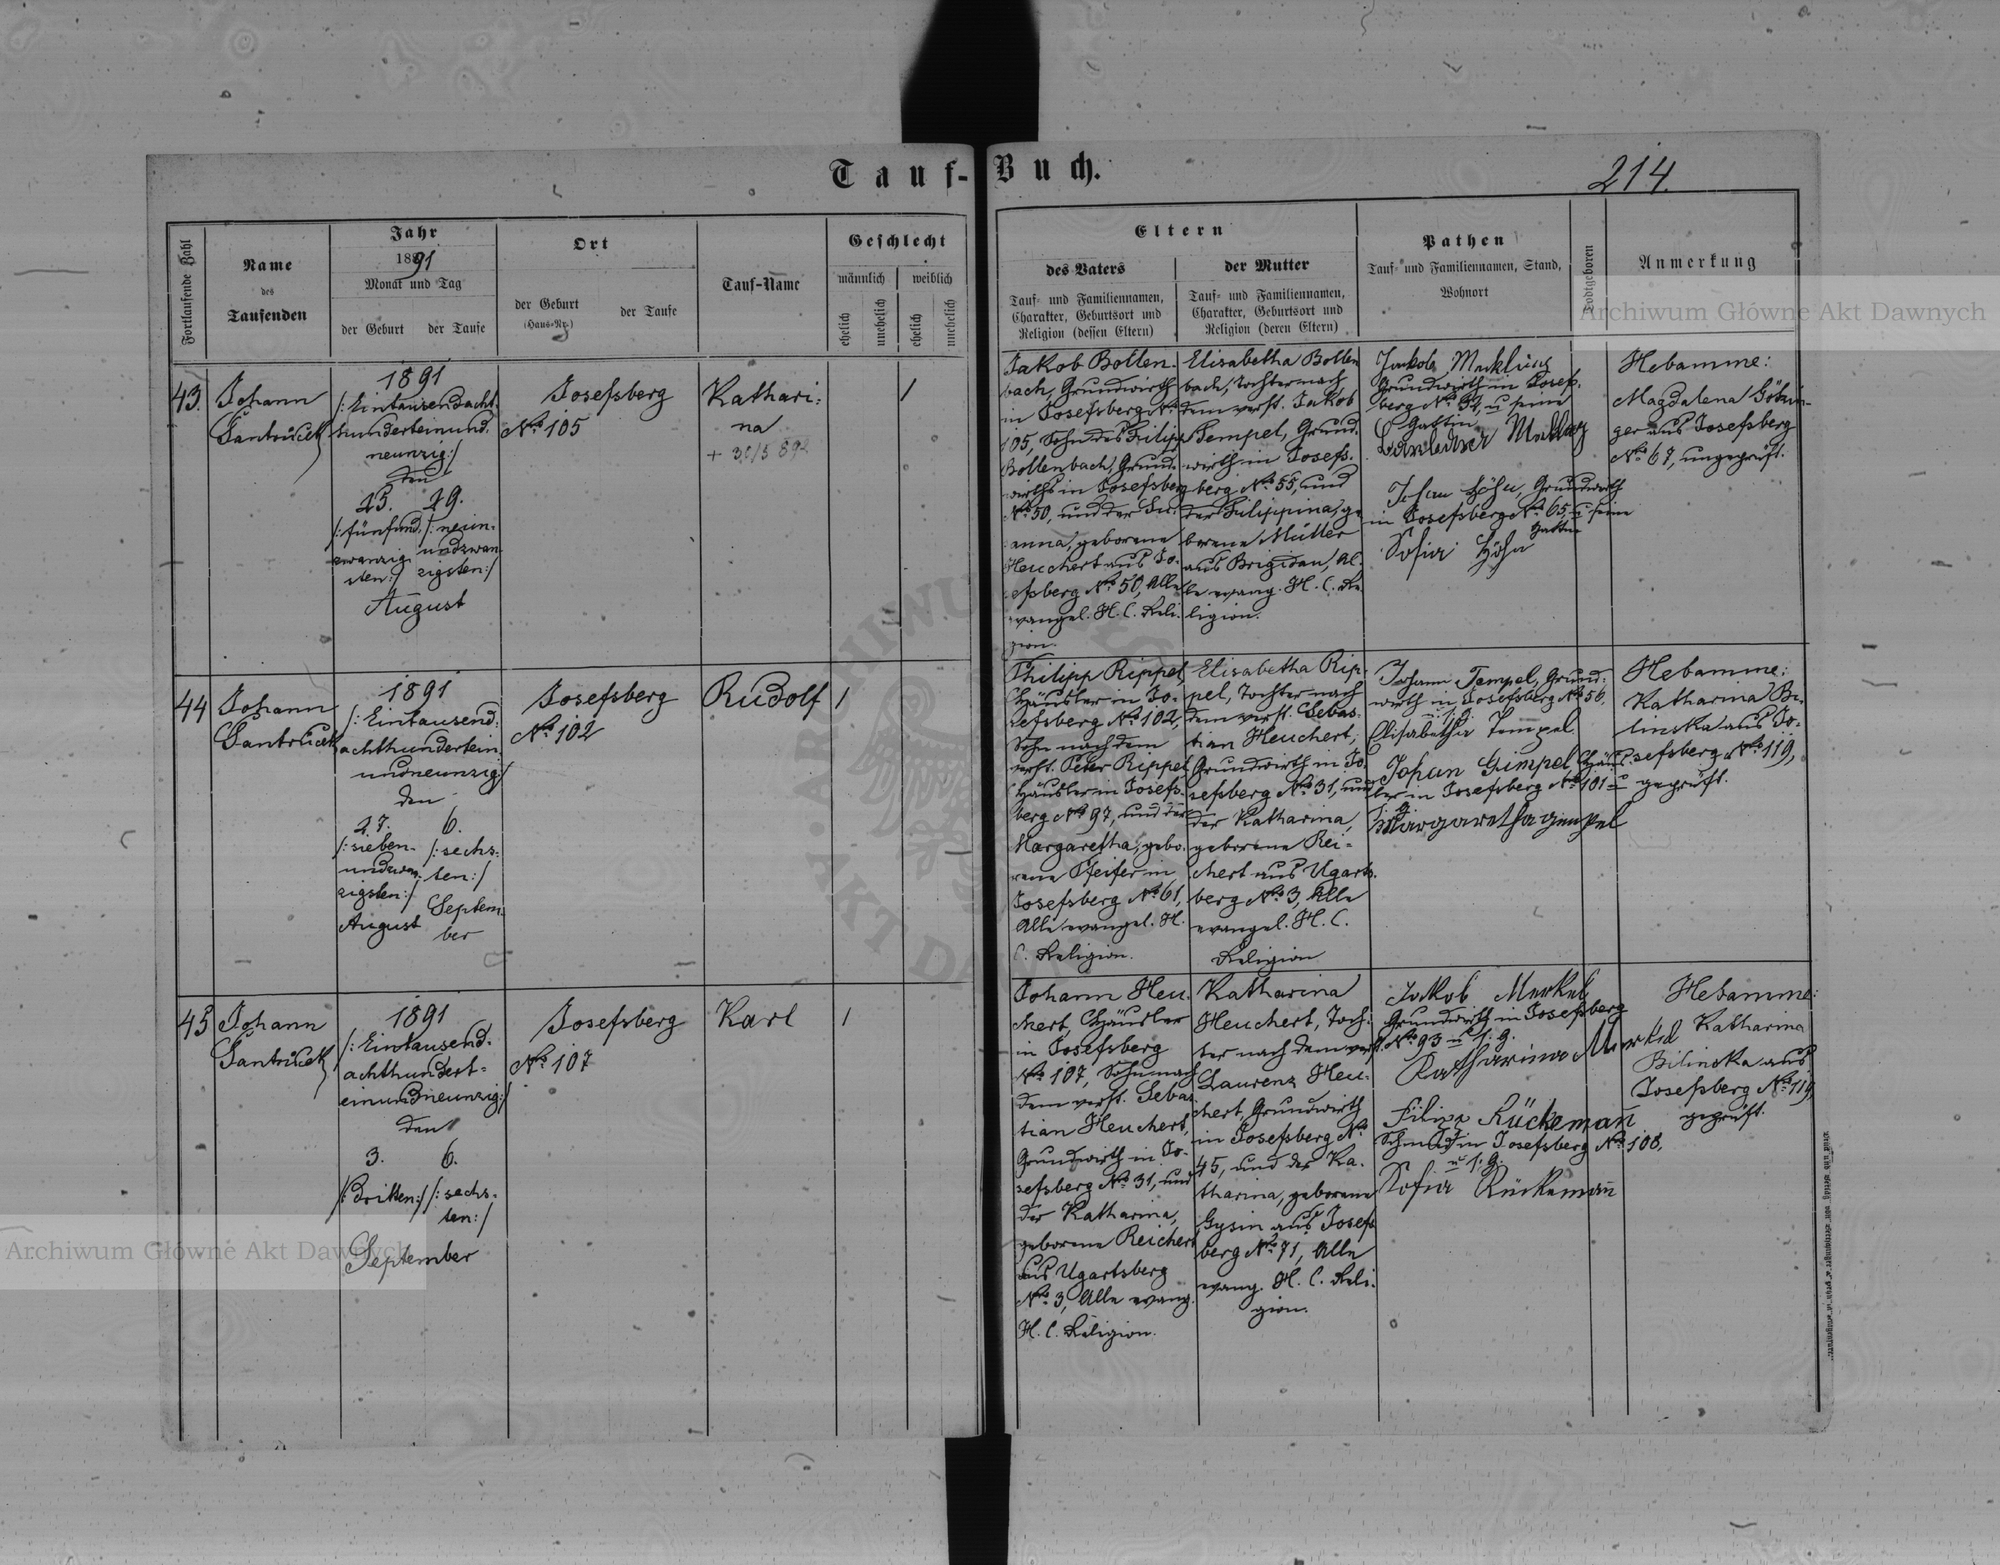 Tauf-Buch.
214.
Fortlaufende Zahl
Name
des
Taufenden
Jahr
1891
Monat und Tag
der Geburt
der Taufe
Ort
der Geburt
(Haus-Nr.)
der Taufe
Tauf-Name
Geschlecht
männlich
weiblich
ehelich
unehelich
ehelich
unehelich
Eltern
des Vaters
Tauf- und Familiennamen,
Charakter, Geburtsort und
Religion (dessen Eltern)
der Mutter
Tauf- und Familiennamen,
Charakter, Geburtsort und
Religion (deren Eltern)
Pathen
Tauf- und Familiennamen, Stand,
Wohnort
Todtgeboren
Anmerkung
Archiwum Główne Akt Dawnych
43.
Johann
Santruček
1891
/:Eintausendacht-
hunderteinund-
neunzig:/
den
25. 29.
/:fünfund /:neun-
zwanzig undzwan
sten:/ zigsten:/
August
Josefsberg
No 105
Kathari-
na
+ 30/5 892
1
Jakob Bollen-
bach, Grundwirth
in Josefsberg No
105, Sohn des Filipp
Bollenbach, Grund-
wirths in Josefsberg
No 50, und der Su-
sanna, geborene
Heuchert aus Jo-
sefsberg No 50, Alle
evangel. H. C. Reli-
gion.
Elisabetha Bollen
bach, Tochter nach
dem verst. Jakob
Tempel, Grund-
wirth in Josefs-
berg No 55, und
der Filippina, ge
borene Müller
aus Brigidau, Al-
le evang. H. C. Re
ligion.
Jakob Mukling
Grundwirth in Josefs-
berg No 34, u seine
Gattin
Johan Höhn, Grundwirth
in Josefsberg No 65, u seine
Gattin
Sofia Höhn
Hebamme:
Magdalena
ger aus Josefsberg
No 67, ungeprüft.
44
Johann
Santruček
1891
/:Eintausend-
achthundertein
undneunzig:/
den
27. 6.
/:sieben- /:sechs-
undzwan- ten:/
zigsten:/
August Septem-
ber
Josefsberg
No 102
Rudolf
1
Philipp Rippel,
Häusler in Jo-
sefsberg No 102,
Sohn nach dem
verst. Peter Rippel
Häusler in Josefs-
berg No 97, und der
Margaretha, gebo-
rene Pfeifer in
Josefsberg No 61,
Alle evangel. H.
C. Religion.
Elisabetha Rip-
pel, Tochter nach
dem verst. Sebas-
tian Heuchert,
Grundwirth in Jo-
sefsberg No 31, und
der Katharina,
geborene Rei-
chert aus Ugarts-
berg No 3, Alle
evangel. H. C.
Religion
Johann Tempel, Grund-
wirth in Josefsberg No 56,
Elisabetha Tempel
Johan Gimpel Häus-
ler in Josefsberg No 101 u
s. g.
Margaretha gimpel
Hebamme:
Katharina Bi-
linska aus Jo-
sefsberg No 119,
geprüft.
45
Johann
Santruček
1891
/:Eintausend-
achthundert-
einundneunzig:/
den
3. 6.
/:Dritten:/ /:sechs-
ten:/
September
Josefsberg
No 107
Karl
1
Johann Heu-
chert, Häusler
in Josefsberg
No 107, Sohn nach
dem verst. Sebas-
tian Heuchert,
Grundwirth in Jo-
sefsberg No 31, und
der Katharina,
geborene Reichert
aus Ugartsberg
No 3, Alle evang.
H. C. Religion.
Katharina
Heuchert, Toch-
ter nach dem verst.
Laurenz Heu-
chert, Grundwirth
in Josefsberg No
45, und der Ka-
tharina, geborene
Gysin aus Josefs
berg No 71, Alle
evang. H. C. Reli-
gion.
Jakob Merkel
Grundwirth in Josefsberg
No 93 u s. g.
Katharina Merkel
Filipp Rückemañ
Schmid in Josefsberg No 108,
u s. g.
Sofia Rückemañ
Hebamme:
Katharina
Bilinska aus
Josefsberg No 119,
geprüft.
Archiwum Główne Akt Dawnych